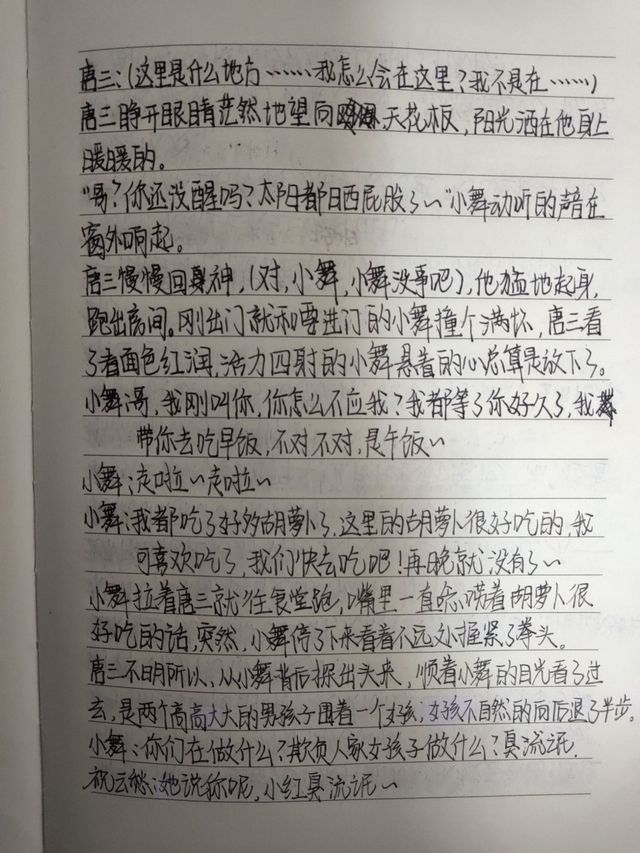 唐三:(这里是什么地方……我怎么会在这里?我不是在……)
唐三睁开眼睛茫然地望向天花板,阳光洒在他身上
暖暖的。
"哥?你还没醒吗?太阳都日西屁股了~"小舞动听的声音在
窗外响起。
唐三慢慢回神,(对,小舞,小舞没事吧),他猛地起身,
跑出房间。刚出门就和要进门的小舞撞个满怀,唐三看
了看面色红润,活力四射的小舞悬着的心总算是放下了。
小舞:哥,我刚叫你,你怎么不应我?我都等了你好久了,我
带你去吃早饭,不对不对,是午饭~
小舞:走啦~走啦~
小舞:我都吃了好多胡萝卜了,这里的胡萝卜很好吃的,我
可喜欢吃了,我们快去吃吧!再晚就没有了~
小舞拉着唐三就往食堂跑,嘴里一直念叨着胡萝卜很
好吃的话,突然,小舞停了下来看着不远处握紧了拳头。
唐三不明所以,从小舞背后探出头来,顺着小舞的目光看了过
去,是两个高高大大的男孩子围着一个女孩,女孩不自然的向后退了半步。
小舞:你们在做什么?欺负人家女孩子做什么?臭流氓.
祝云愁:她说你呢,小红臭流氓~